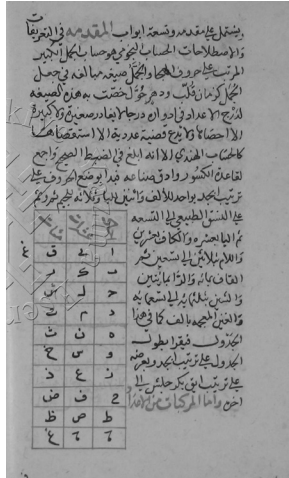 يشتمل على مقدمه وتسعة ابواب المقدمه في التعريفات
والاصطلاحات الحساب النجومي هو حساب الجمل الكبير
المرتب على حروف الهجا والجمل صيغه مبالغه في جمل
الجمل كزمان قلب ودهر حول اختصت به هذه الصيغه
لتدرج الاعداد في ادواره درجا لا يغادر صغيرة ولا كبيرة
الا احصاها ولا يدع قضية عددية الا استقصاها
كالحساب الهندي الا انه ابلغ في الضبط الصحيح واجمع
لقاعدة الكسور وادق صناعه فيدا بوضع الحروف على
ترتيب ابجد بواحد للالف واثنين للبا وثلاثه للجيم ثم كم
على النسق الطبيعي الى التسعه
ثم اليا بعشره والكاف بعشرين
واللام بثلاثين الى تسعين ثم
القاف بمائه والرا بمائتين
والشين بثلثمايه الى تسعمايه
والغين المعجمه بالف كما في هذا
الجدول فيقرا بطون
الجدول على ترتيب ابجد وبعرضه
على ترتيب ايق بكر جلش الى
اخره واما المركبات من الاعداد
احاد عشرات مئات
ا ى ق غ
ب ك ر
ج ل ش
د م ت
ه ن ث
و س خ
ز ع ذ
ح ف ض
ط ص ظ